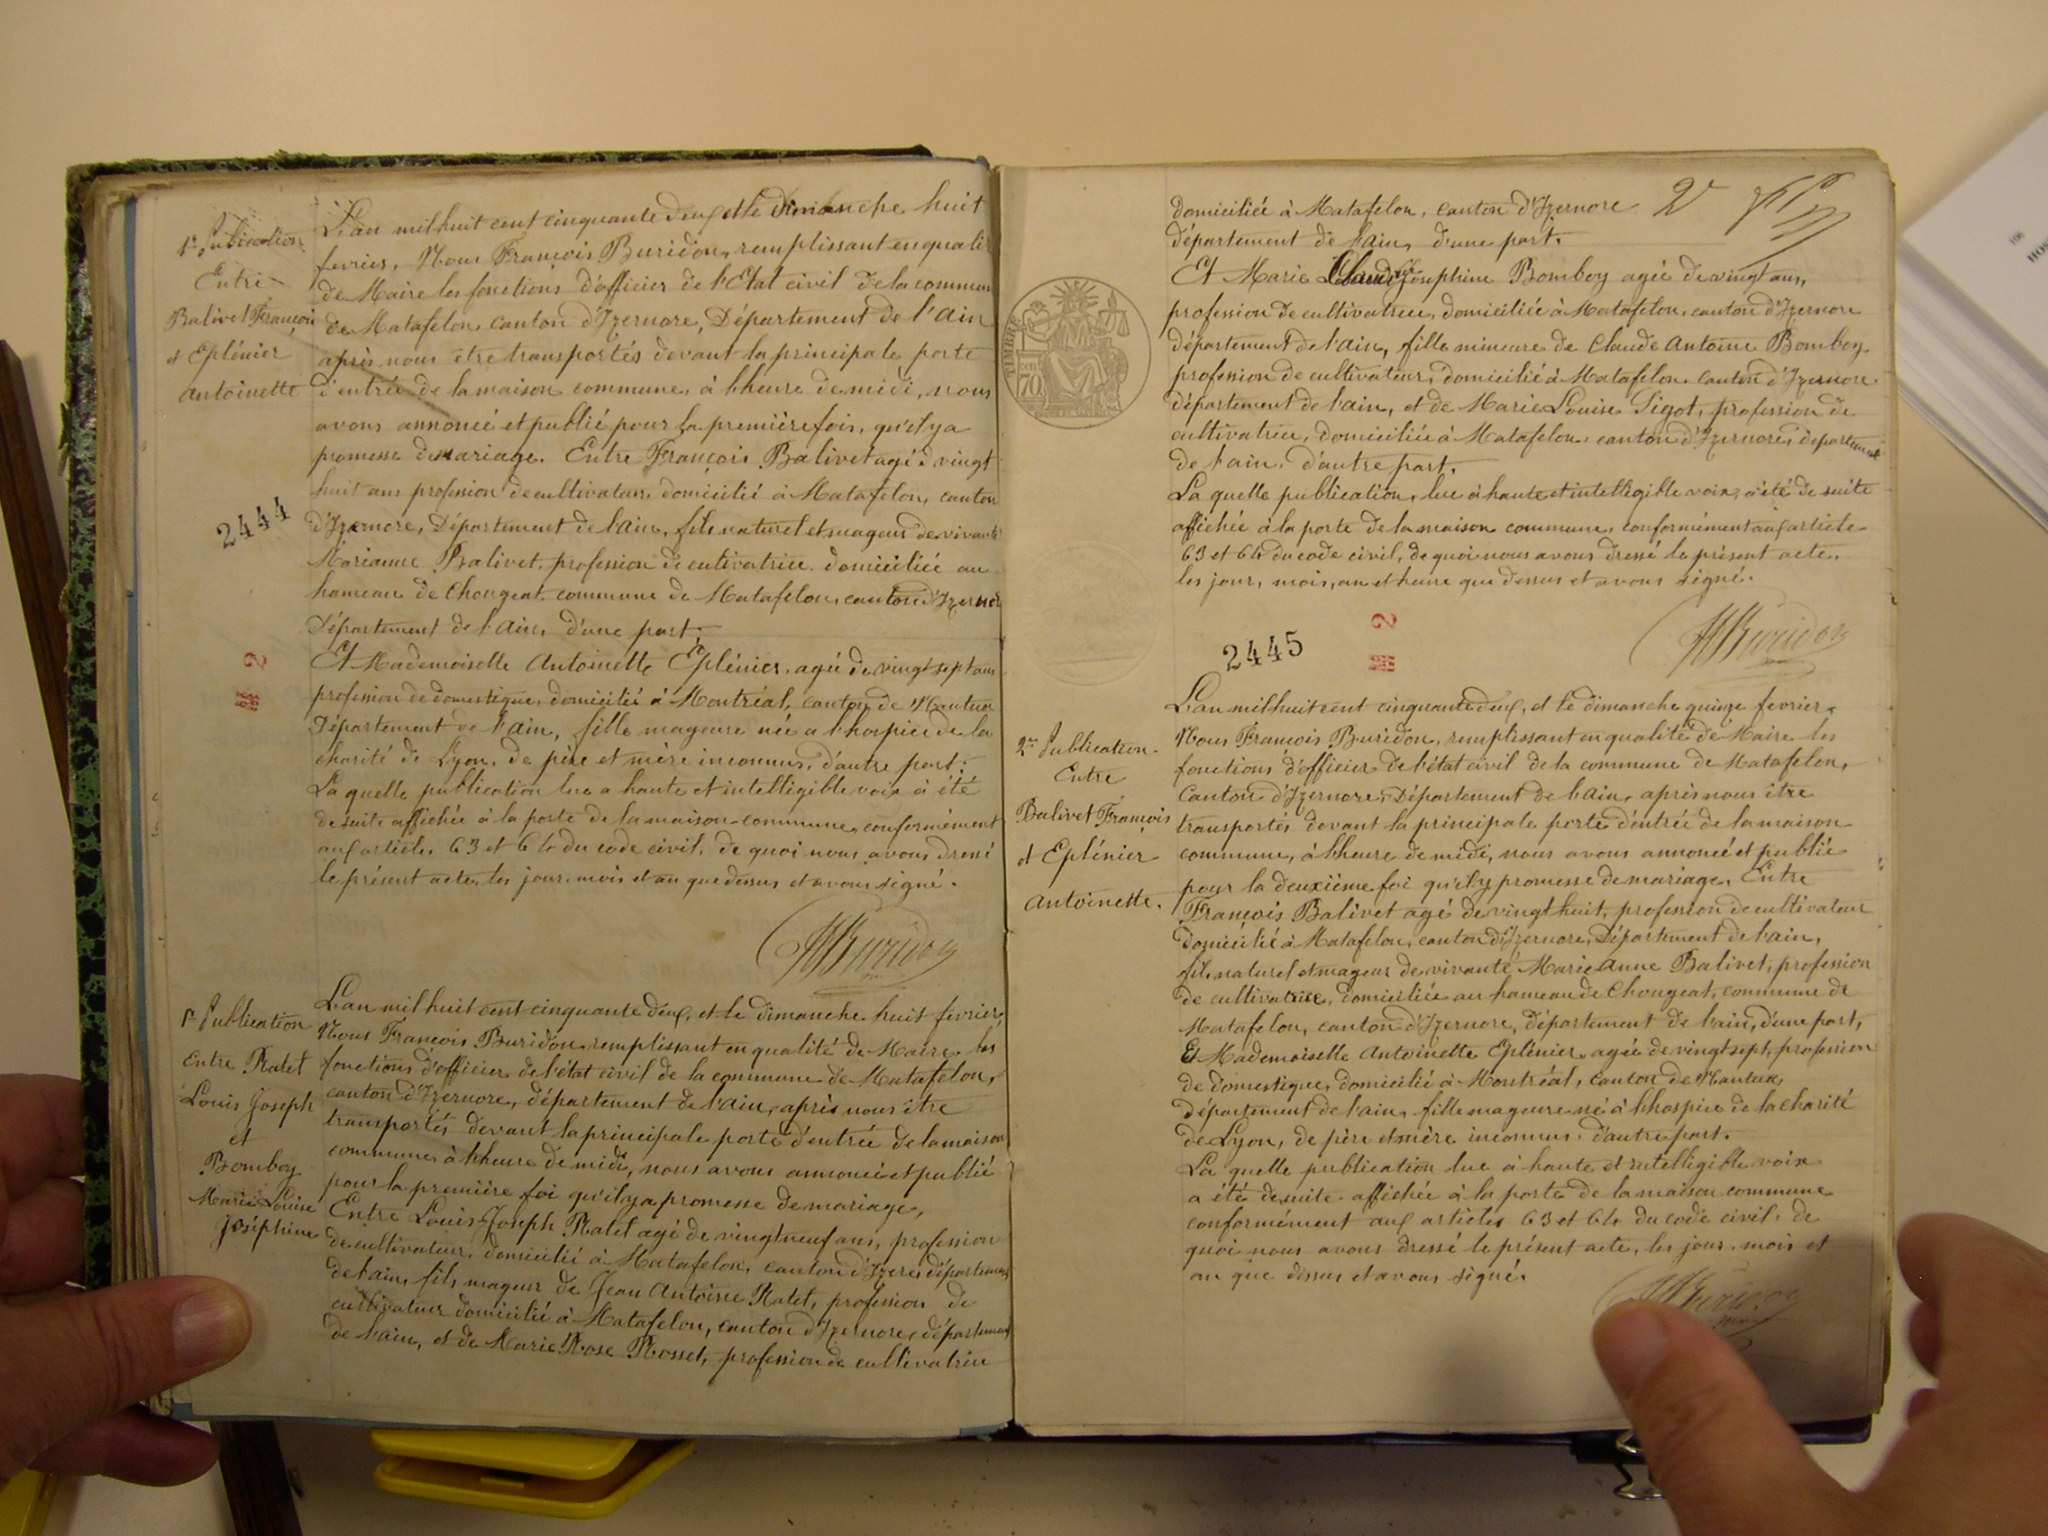 1re Publication
Entre
Balivet François
et Eplénier
Antoinette
L'an mil huit cent cinquante deux et le Dimanche huit
fevrier, Nous François Buridon, remplissant en qualité
de Maire les fonctions d'officier de l'Etat civil de la commun
de Matafelon, canton d'Izernore, Département de l'Ain
après nous être transportés devant la principale porte
d'entrée de la maison commune, à l'heure de midi, nous
avons annoncé et publié pour la première fois, qu'il y a
promesse de mariage. Entre François Balivet agé d vingt
huit ans profession de cultivateur, domicilié à Matafelon, canton
d'Izernore, Département de l'Ain, fils naturel et mageur de vivante
Marianne Balivet, profession de cultivatrice domiciliée au
hameau de Chougeat commune de Matafelon, canton d'Izernor
Département de l'Ain, d'une part;
Et Mademoiselle Antoinette Eplénier, agée de vingt sept ans
profession de domestique, domicilié à Montréal, canton de Nantua
Département de l'Ain, fille mageure née a l'hospice de la
charité de Lyon, de père et mère inconnus, d'autre part;
La quelle publication lue a haute et intelligible voix à été
de suite affichée à la porte de la maison commune, conformément
aux articles 63 et 64 du code civil, de quoi nous avons dressé
le présent acte, les jour, mois et an que dessus et avons signé.
2444
Buridon
1re Publication
Entre Ratet
Louis Joseph
et
Bomboy
Marie Louise
Joséphine
L'an mil huit cent cinquante deux, et le dimanche huit février,
Nous François Buridon, remplissant en qualité de Maire les
fonctions d'officier de l'état civil de la commune de Matafelon,
canton d'Izernore, département de l'ain, après nous être
transportés devant la principale porte d'entrée de la maison
commune, à l'heure de midi, nous avons annoncé et publié
pour la première foi qu'il y a promesse de mariage,
Entre Louis Joseph Ratet agé de vingt neuf ans, profession
de cultivateur, domicilié à Matafelon, canton d'Izere, départemen
de l'ain, fils mageur de Jean Antoine Ratet, profession de
cultivateur domicilié à Matafelon, canton d'Izernore, département
de l'ain, et de Marie Rose Rosset, profession de cultivatrice
domiciliée à Matafelon, canton d'Izernore
département de l'ain, d'une part.
2
Et Marie Joséphine Bomboy agée de vingt ans,
profession de cultivatrice, domiciliée à Matafelon, canton d'Izernore
département de l'ain, fille mineure de Claude Antoine Bomboy
profession de cultivateur, domicilié à Matafelon canton d'Izernore
département de l'ain, et de Marie Louise Tigot, profession de
cultivatrice, domiciliée à Matafelon, canton d'Izernore, département
de l'ain, d'autre part.
La quelle publication, lue à haute et intelligible voix, a été de suite
affichée à la porte de la maison commune, conformément aux article
63 et 64 du code civil, de quoi nous avons dressé le présent acte,
les jour, mois, an et heure que dessus et avons signé.
TIMBRE
70
Buridon
2445
2
2me Publication
Entre
Balivet François
et Eplénier
Antoinette.
L'an mil huit cent cinquante deux, et le dimanche quinze fevrier,
Nous François Buridon, remplissant en qualité de Maire les
fonctions d'officier de l'état civil de la commune de Matafelon,
Canton d'Izernore, Département de l'ain, après nous être
transportés devant la principale porte d'entrée de la maison
commune, à l'heure de midi, nous avons annoncé et publié
pour la deuxième foi qu'il y promesse de mariage, Entre
François Balivet agé de vingt huit, profession de cultivateur
domicilié à Matafelon, canton d'Izernore, Département de l'ain,
fils naturel et mageur de vivante Marie Anne Balivet, profession
de cultivatrice, domiciliée au hameau de Chougeat, commune de
Matafelon, canton d'Izernore, département de l'ain, d'une part,
Et Mademoiselle Antoinette Eplénier, agée de vingt sept, profession
de domestique, domicilié à Montréal, canton de Nantua,
département de l'ain, fille mageure né à l'hospice de la charité
de Lyon, de père et mère inconnus, d'autre part.
La quelle publication lue à haute et intelligible voix
a été de suite affichée à la porte de la maison commune
conformément aux articles 63 et 64 du code civil, de
quoi nous avons dressé le présent acte, les jour, mois et
an que dessus et avons signé.
Buridon